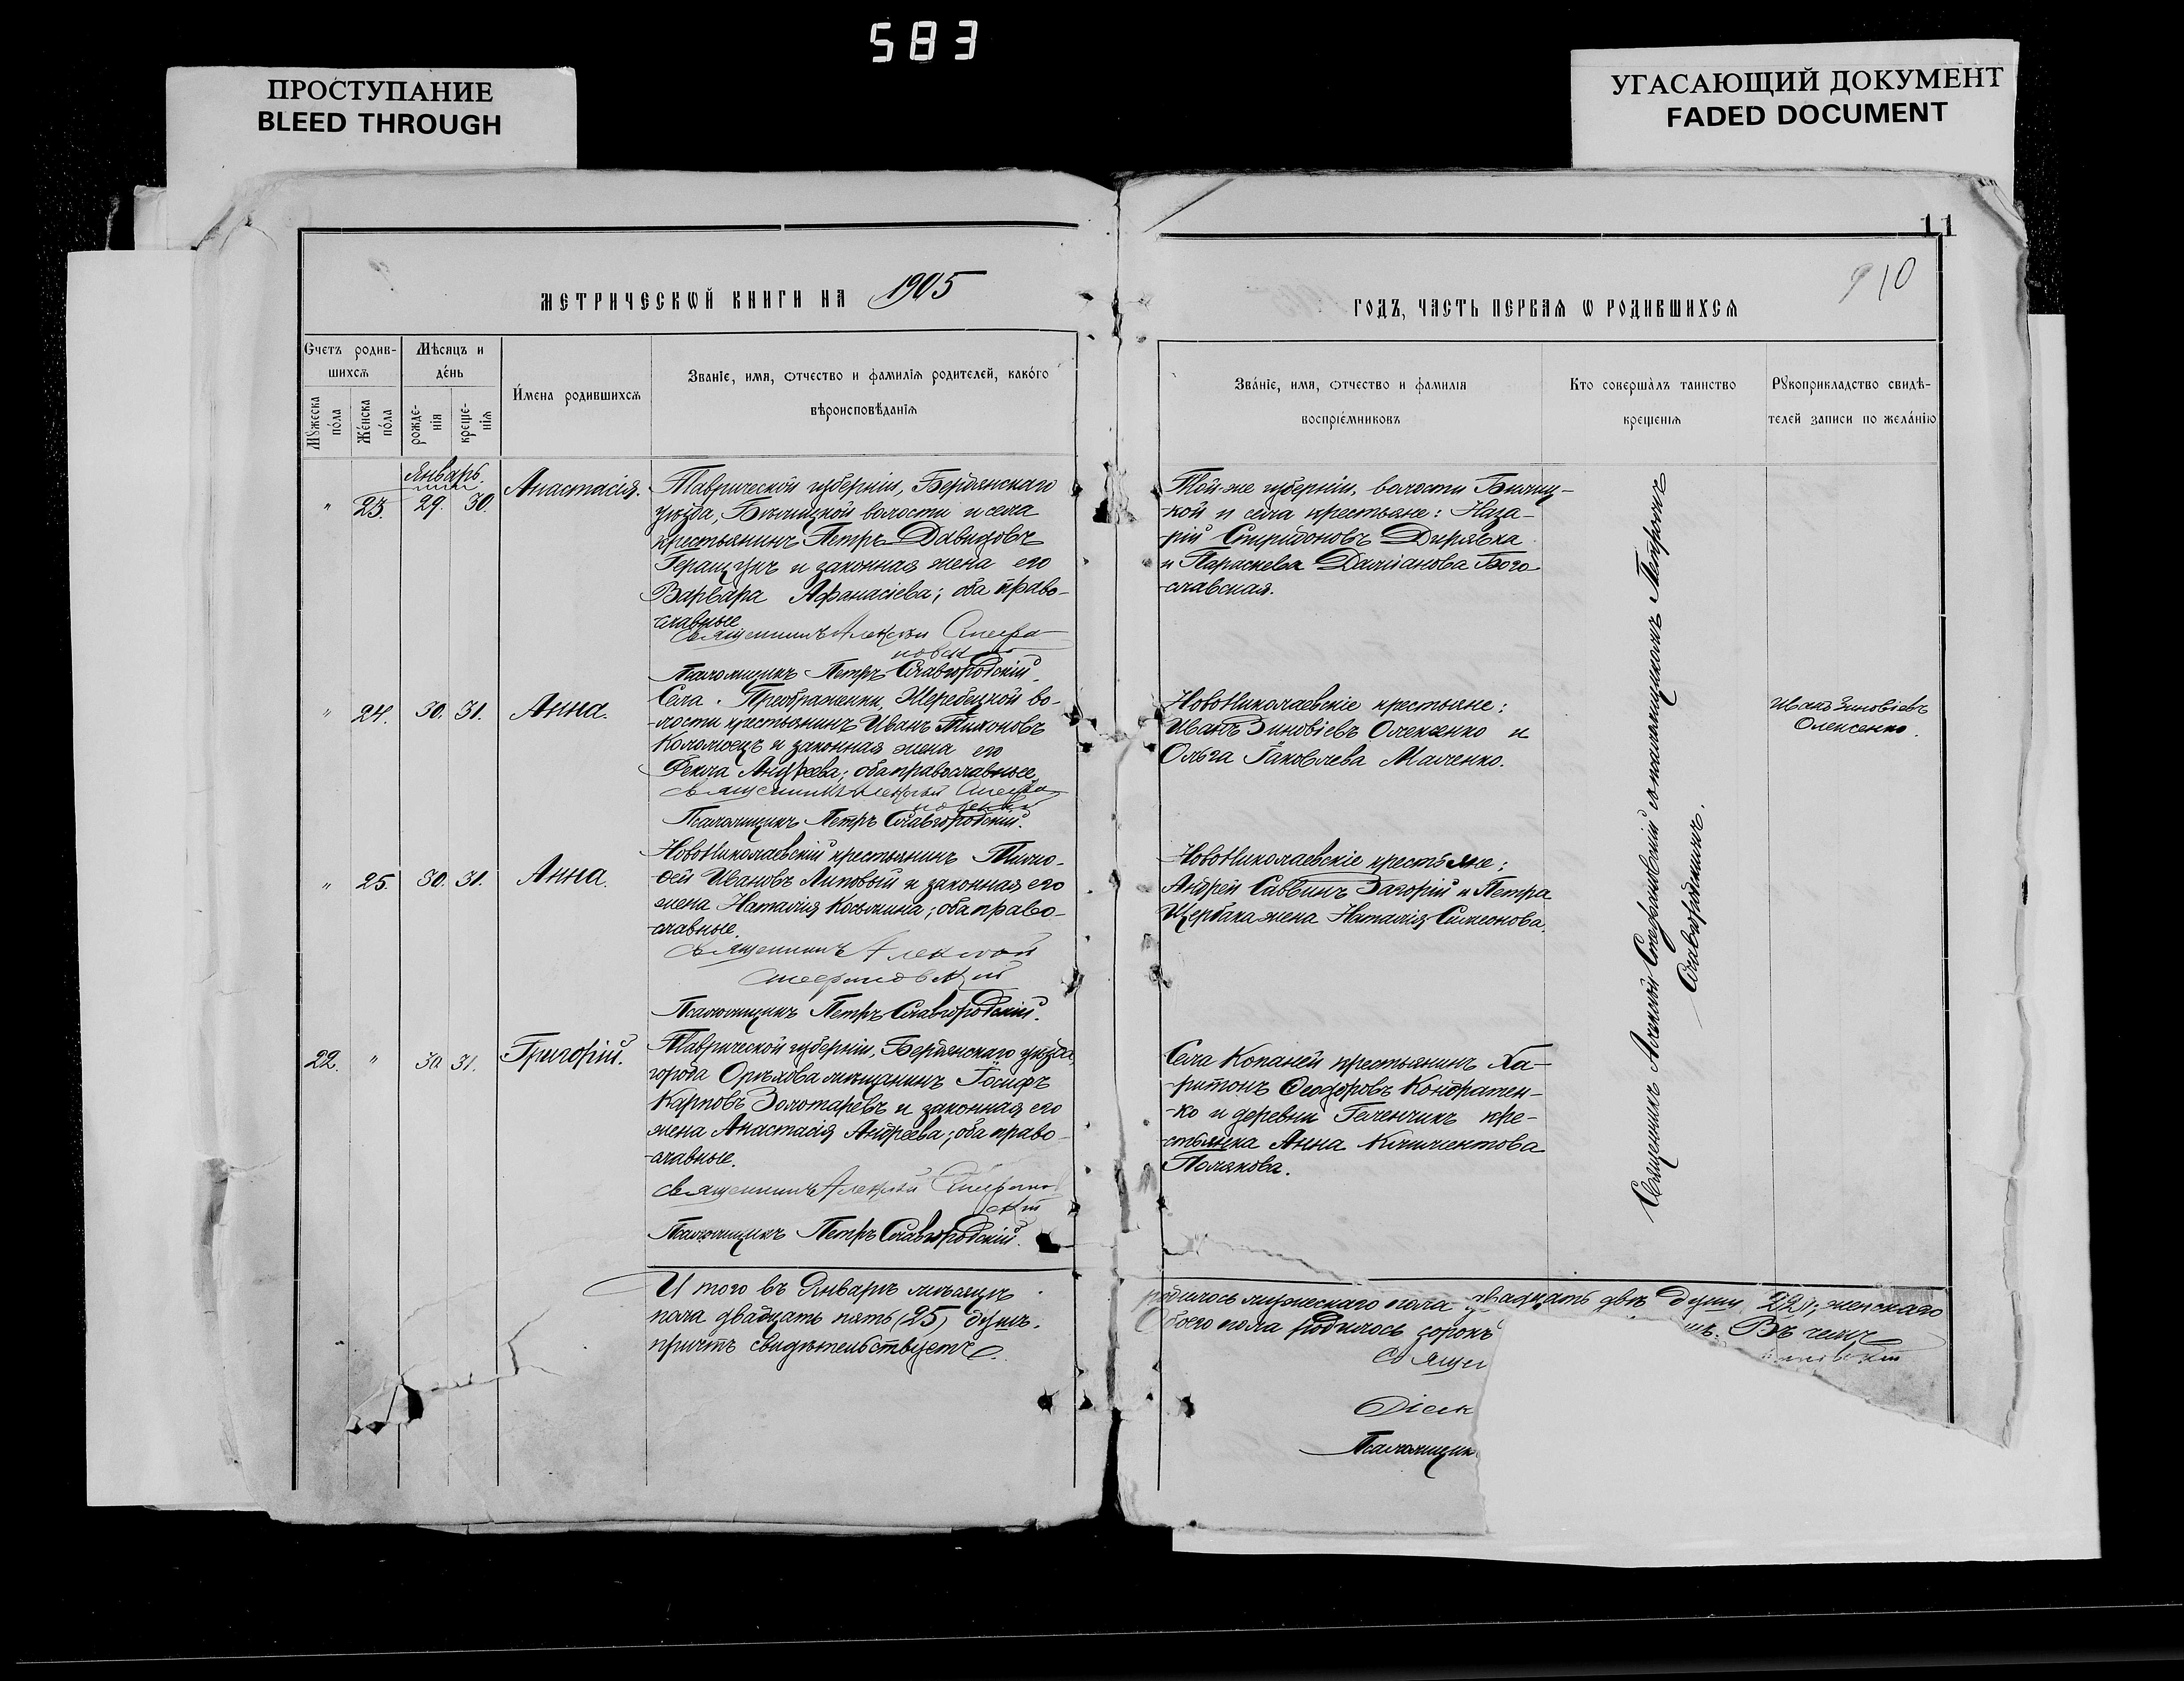 583
ПРОСТУПАНИЕ
BLEED THROUGH
УГАСАЮЩИЙ ДОКУМЕНТ
FADED DOCUMENT
11
9 10
МЕТРИЧЕСКѠЙ КНИГИ НА 1905
ГОДЪ, ЧАСТЬ ПЕРВАѦ Ѡ РОДИВШИХСѦ
Счетъ родив-
шихсѧ
Мꙋжеска
по́ла
Же́нска
по́ла
Мѣсѧцъ и
де́нь
рожде-
нїѧ
креще-
нїѧ
И́мена родившихсѧ
Званїе, имѧ, ѻтчество и фамилїѧ родителей, како́го
вѣроисповѣ́данїѧ
Зва́нїе, имѧ, ѻтчество и фамилїѧ
воспрїе́мниковъ
Кто соверша̀лъ таинство
крещенїѧ
Рꙋкоприкладство свидѣ-
телей записи по жела́нїю
Январь.
" 23. 29. 30. Анастасія.
Таврической губерніи, Бердянскаго
уѣзда, Бѣлицкой волости и села
крестьянинъ Петръ Давидовъ
и законная жена его
Варвара Афанасіева; оба право-
славные
Священникъ Алексѣй Стефа
новскій
Псаломщикъ Петръ Славгородскій.
Той-же губерніи, волости Бѣлиц-
-кой и села крестьяне: Наза-
-рій Спиридоновъ Дирявка
и Параскева Даміанова Бого-
-славская.
" 24. 30. 31. Анна.
Села Преображенки, Жеребецкой во-
-лости крестьянинъ Иванъ
Коломоецъ и законная жена его
Фекла Андреева; оба православные.
Священникъ Алексѣй Стефа
новскій
Псаломщикъ Петръ Славгородскій.
НовоНиколаевскіе крестьяне:
Иванъ Зиновіевъ Олексенко и
Ольга Іаковлева Малченко.
Иванъ Зиновіевъ
Олексенко.
" 25. 30. 31. Анна.
НовоНиколаевскій крестьянинъ Тимо-
ѳей Ивановъ Липовый и законная его
жена Наталія Косьмина; оба право-
-славные.
Священникъ Алексѣй
Стефановскій
Псаломщикъ Петръ Славгородскій.
НовоНиколаевскіе крестьяне:
Андрей Саввинъ Загорій и Петра
Щербака жена Наталія Симеонова.
22. " 30 31. Григорій.
Таврической губерніи, Бердянскаго уѣзда,
города Орѣхова мѣщанинъ Іосифъ
Карповъ Золотаревъ и законная его
жена Анастасія Андреева; оба право-
-славные.
Священникъ Алексѣй Стефанов
скій
Псаломщикъ Петръ Славгородскій.
Села Копаней крестьянинъ Ха-
-ритонъ Ѳеодоровъ Кондратен-
-ко и деревни Геленчикъ кре-
-стьянка Анна Климентова
Полякова.
Священникъ Алексѣй Стефановскій съ псаломщикомъ Петромъ
Славгородскимъ.
И того въ Январѣ мѣсяцѣ
родилось мужескаго пола двадцать двѣ души (22); женскаго
пола двадцать пять (25) душъ.
Обоего пола родилось сорокъ
Въ чемъ
причтъ свидѣтельствуетъ
Свящ
Діак
Псаломщик